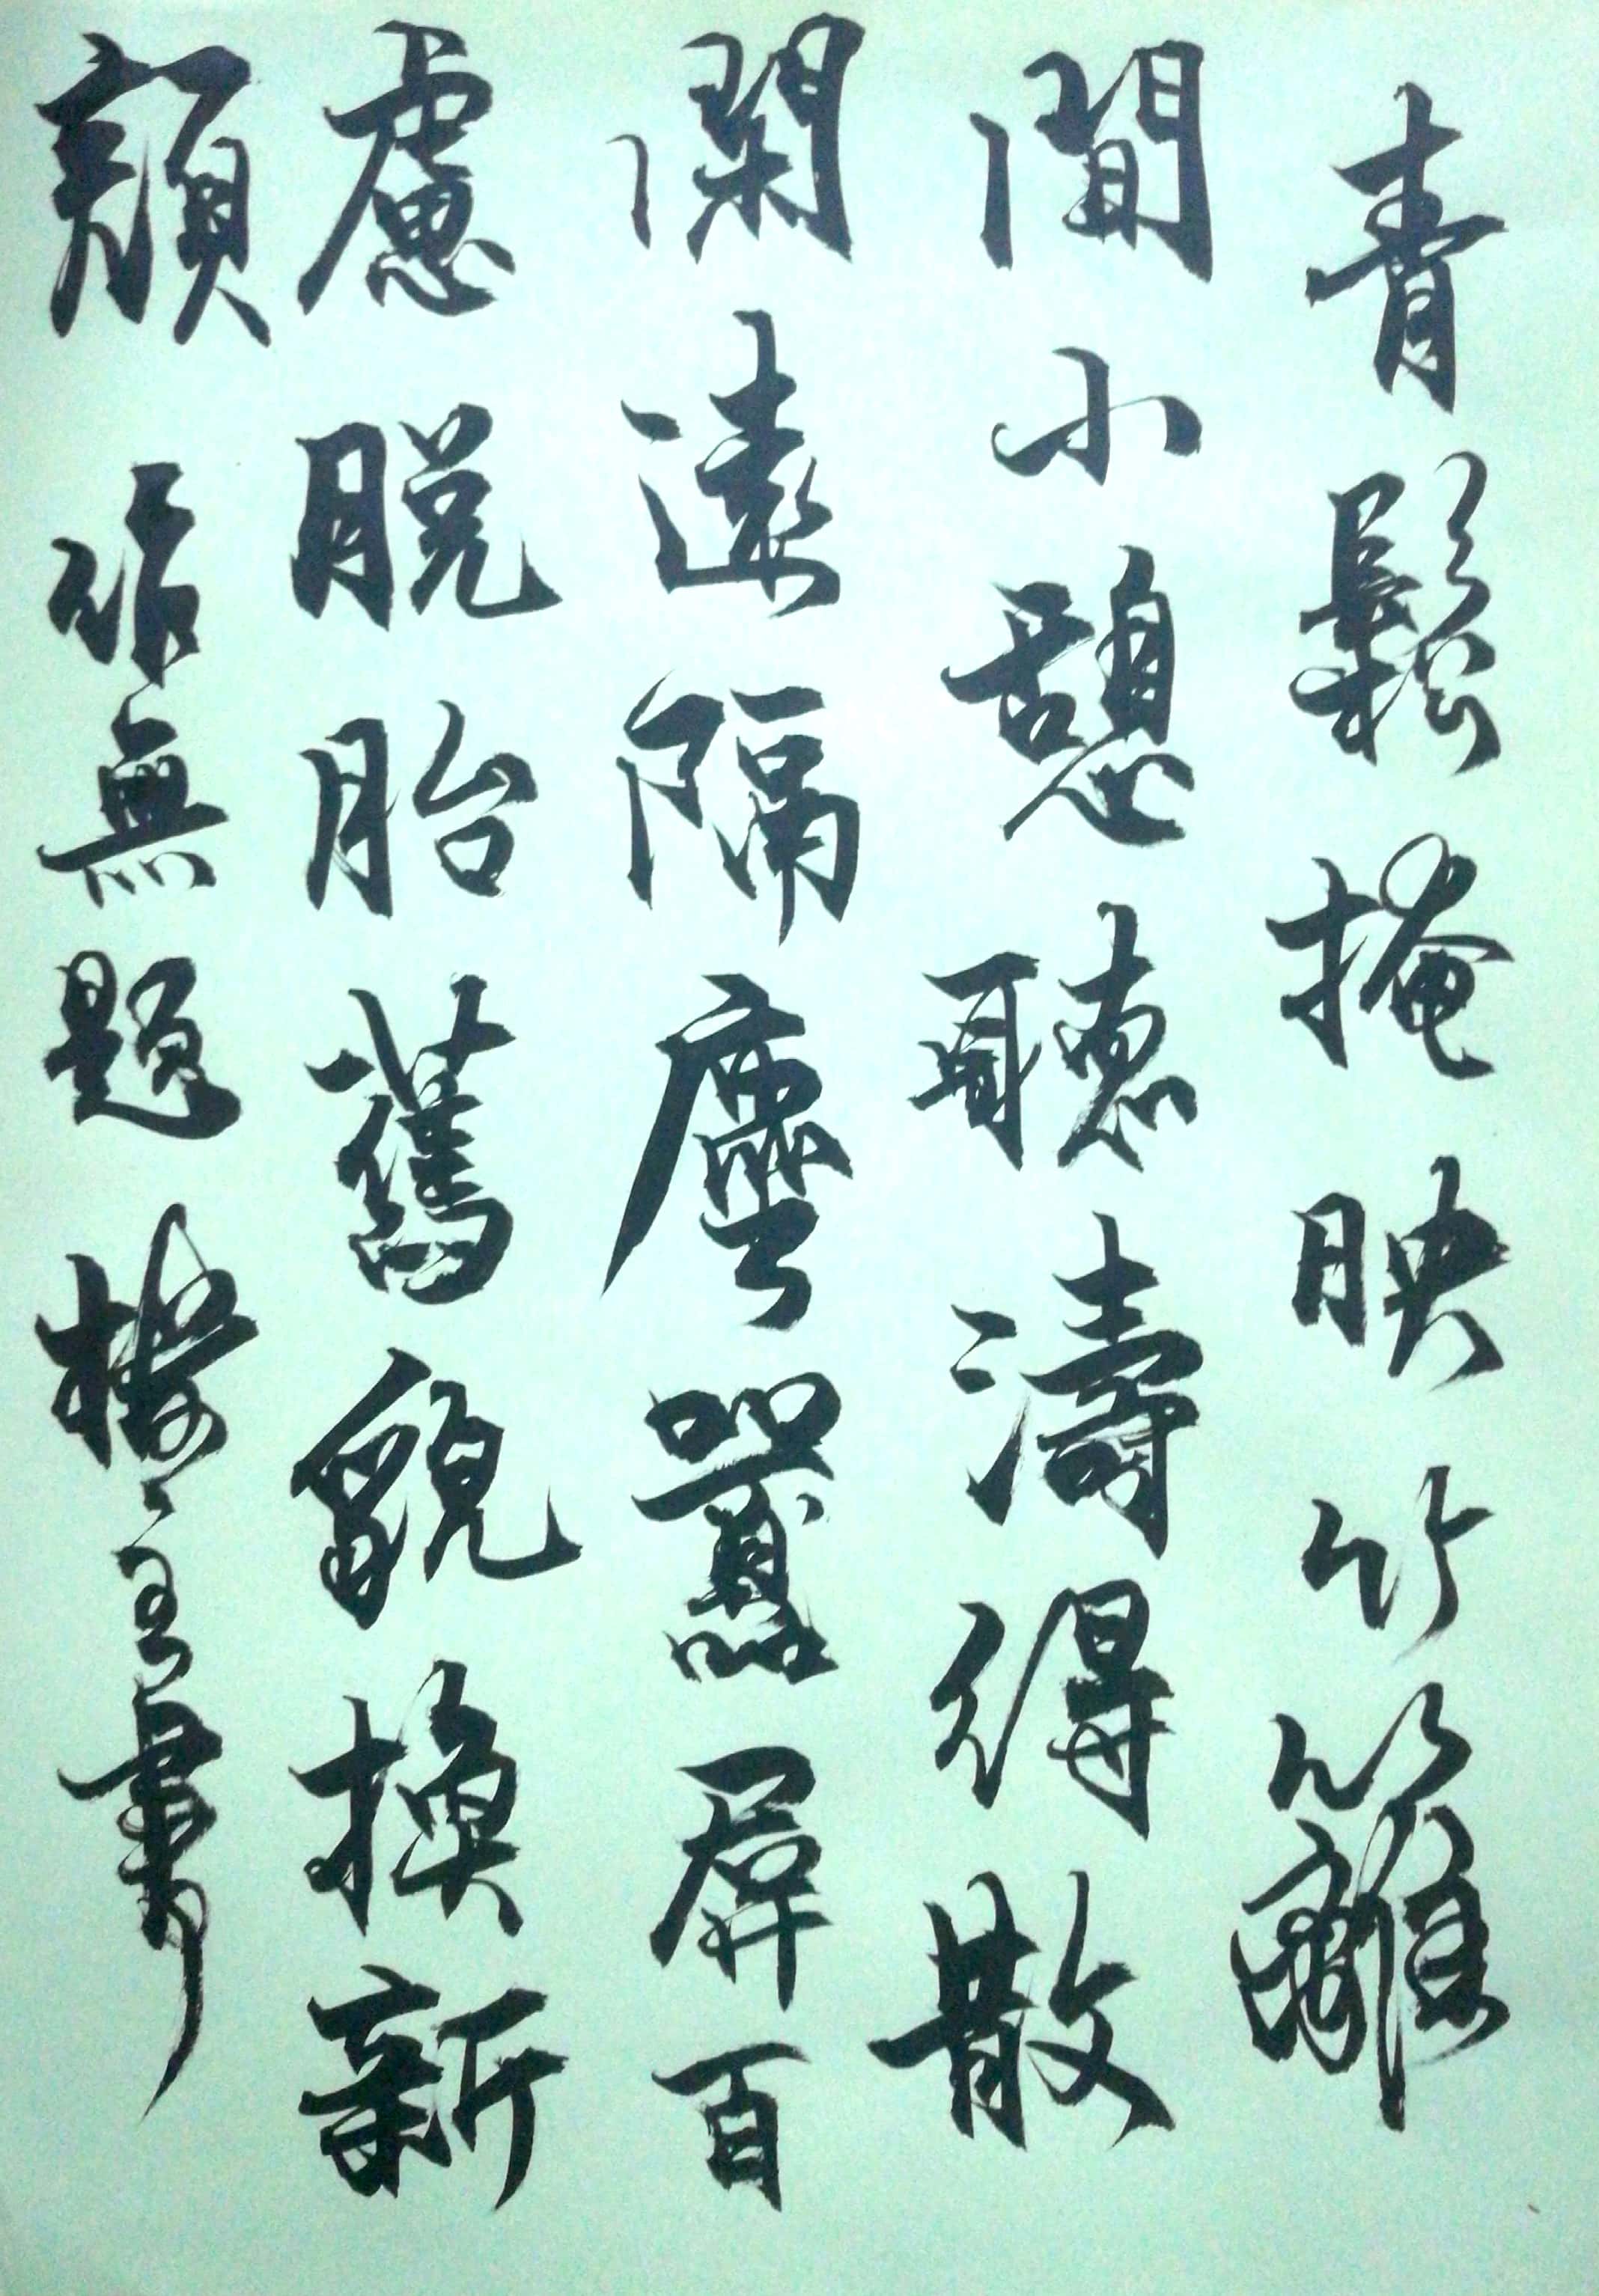 青鬆掩映竹籬
間小憩聽濤得散
閑遠隔塵囂屏百
慮脫胎舊貌換新
顏 作無題 樓主書